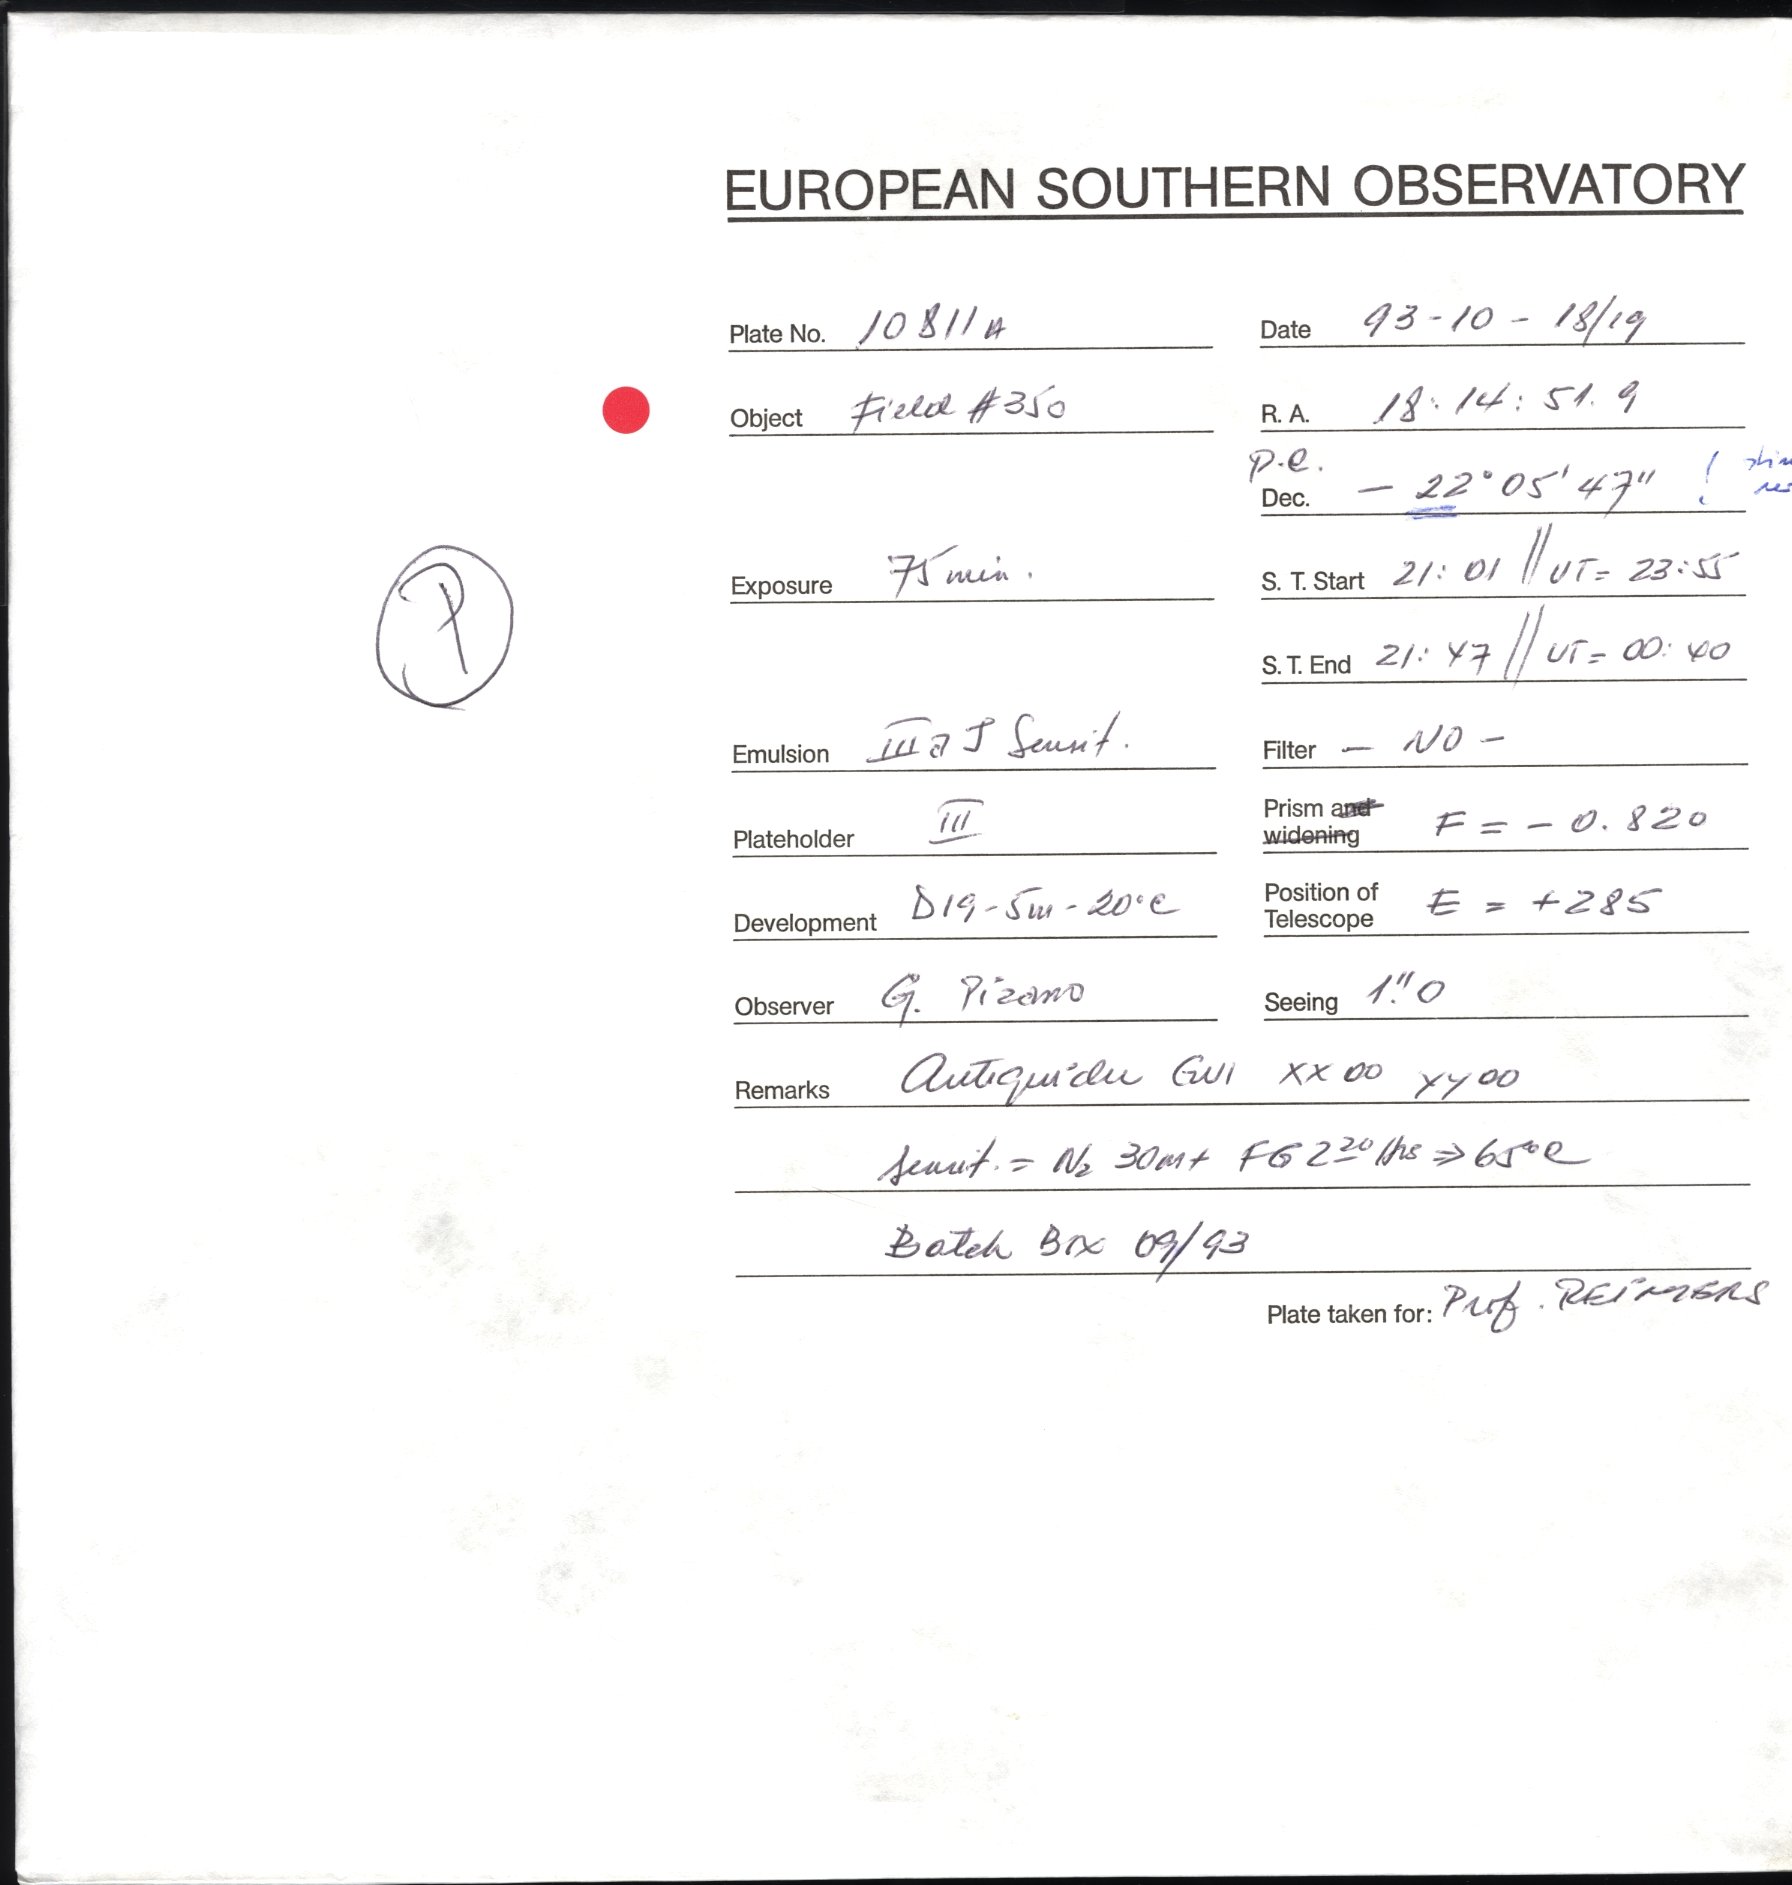 EUROPEAN SOUTHERN OBSERVATORY
Plate No. 10811A
Date 93-10-18/19
Object Field #350
R. A. 18:14:51.9
p.e.
Dec. - 22° 05' 47" (
Exposure 75 min.
S. T. Start 21:01 // UT= 23:55
P
S. T. End 21:47 // UT= 00:40
Emulsion IIIaJ Sensit.
Filter - NO -
Plateholder III
Prism and widening F = - 0.820
Development D19-5m-20°C
Position of Telescope E = +285
Observer G. Pizarro
Seeing 1."0
Remarks GUI XX00 YY00
Sensit. = N2 30m+ FG 2 20 Hrs ⇒ 65°C
Batch Box 09/93
Plate taken for: Prof. REIMERS